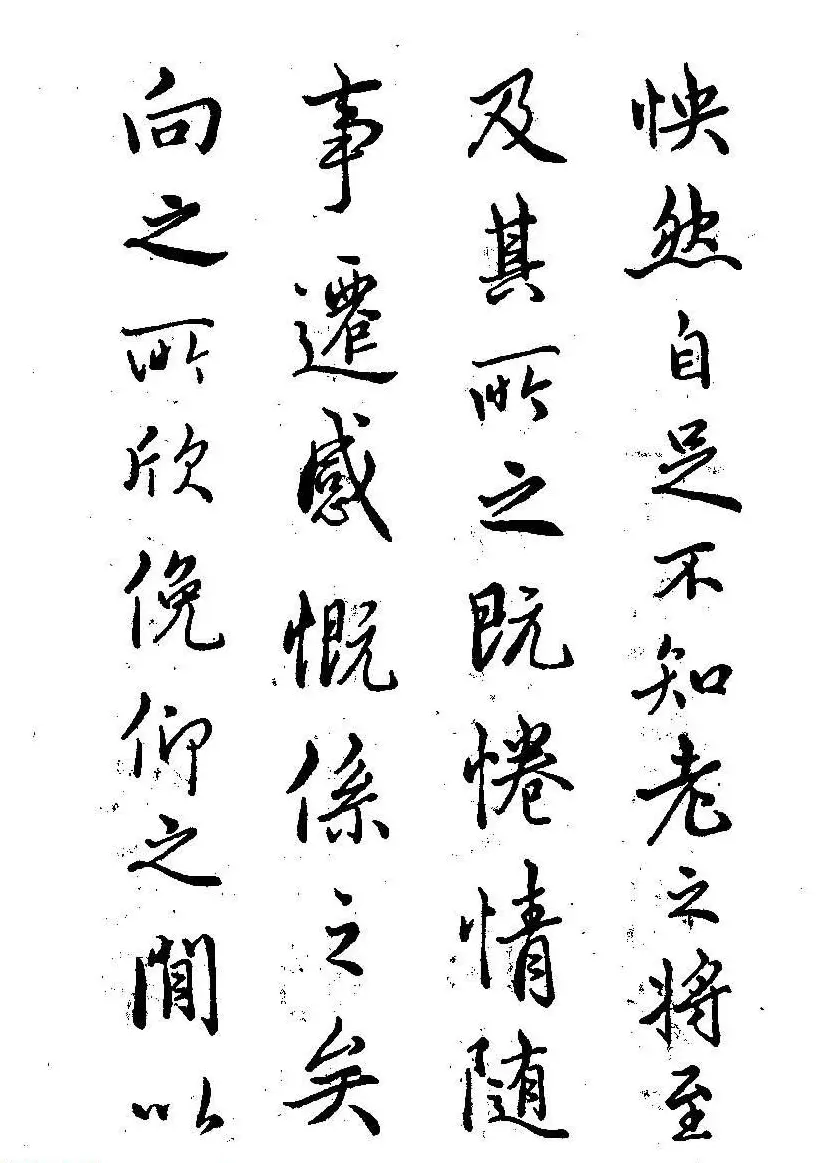 怏然自足不知老之将至
及其所之既惓情随
事遷感慨係之矣
向之所欣俛仰之閒以